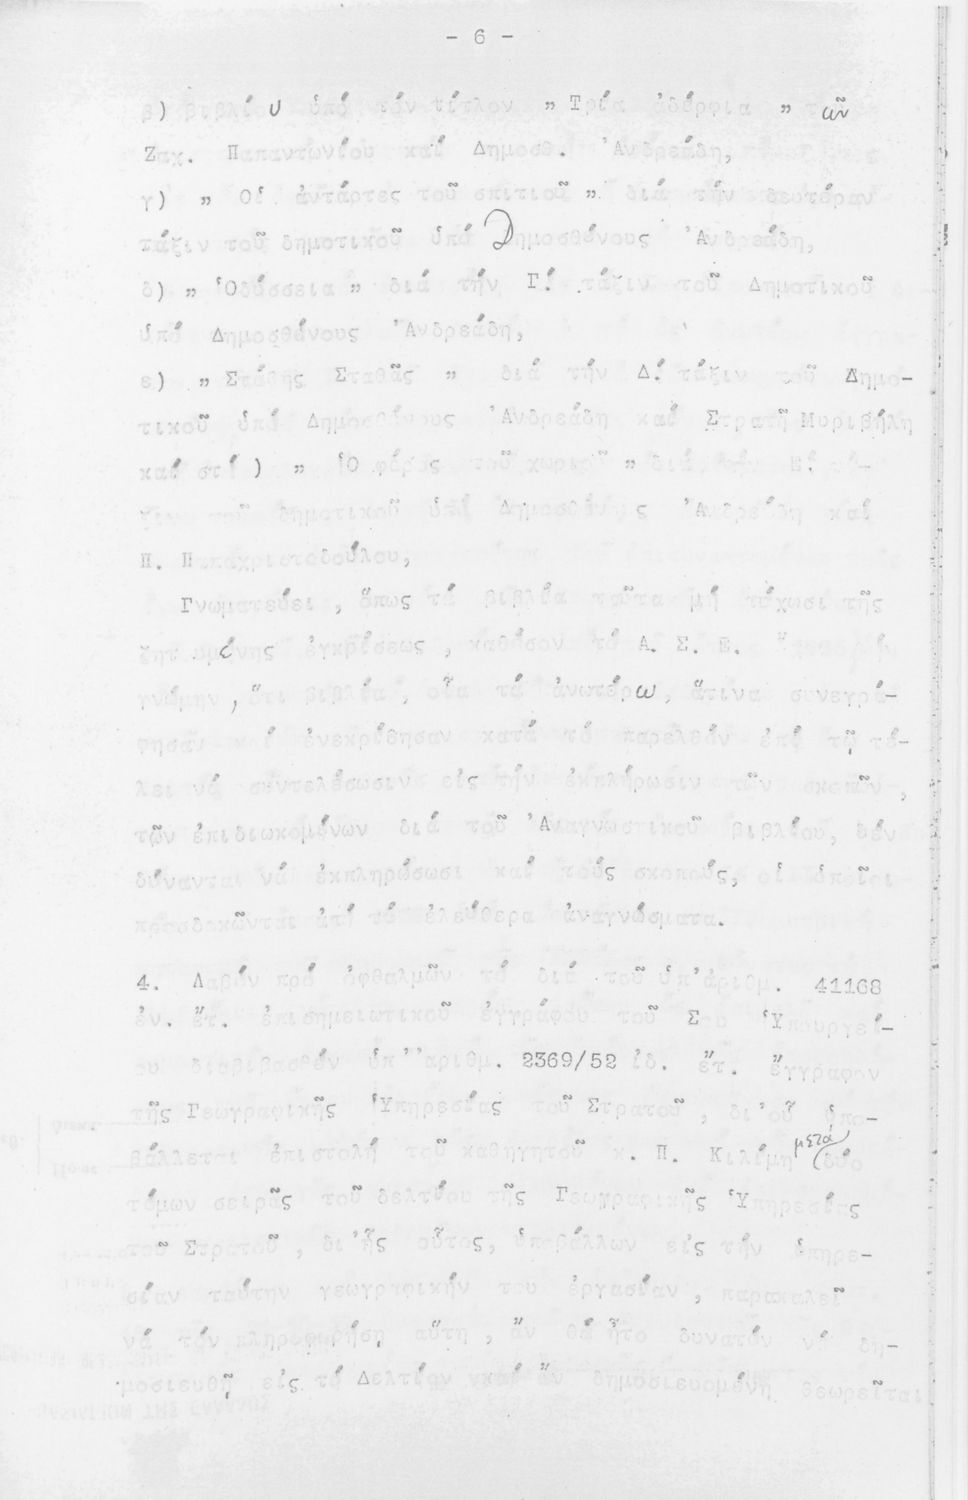 - 6 -
β) βιβλίου ὑπό τόν τίτλον " Τρία ἀδέρφια " τῶν
Ζαχ. Παπαντωνίου καί Δημοσθ. Ἀνδρεάδη,
γ) " Οἱ ἀντάρτες τοῦ σπιτιοῦ " διά τήν δευτέραν
τάξιν τοῦ δημοτικοῦ ὑπό Δημοσθένους Ἀνδρεάδη,
δ) " Ὀδύσσεια " διά τήν Γ΄. τάξιν τοῦ Δημοτικοῦ
ὑπό Δημοσθένους Ἀνδρεάδη,
ε) " Στάθης Σταθᾶς " διά τήν Δ΄. τάξιν τοῦ Δημο-
τικοῦ ὑπό Δημοσθένους Ἀνδρεάδη καί Στρατῆ Μυριβήλη
καί στ΄) " Ὁ φόρος τοῦ χωριοῦ " διά τήν Ε΄. τά-
ξιν τοῦ δημοτικοῦ ὑπό Δημοσθένους Ἀνδρεάδη καί
Π. Παπαχριστοδούλου,
Γνωματεύει, ὅπως τά βιβλία ταῦτα μή τύχωσι τῆς
ζητουμένης ἐγκρίσεως, καθόσον τό Α. Σ. Ε. ἔχει τήν
γνώμην, ὅτι βιβλία, οἷα τά ἀνωτέρω, ἅτινα συνεγρά-
φησαν καί ἐνεκρίθησαν κατά τό παρελθόν ἐπί τῷ τέ-
λει νά συντελέσωσιν εἰς τήν ἐκπλήρωσιν τῶν σκοπῶν,
τῶν ἐπιδιωκομένων διά τοῦ Ἀναγνωστικοῦ βιβλίου, δέν
δύνανται νά ἐκπληρώσωσι καί τούς σκοπούς, οἱ ὁποῖοι
προσδοκῶνται ἀπό τά ἐλεύθερα ἀναγνώσματα.
4. Λαβόν πρό ὀφθαλμῶν τό διά τοῦ ὑπ' ἀριθμ. 41168
ἐν. ἔτ. ἐπισημειωτικοῦ ἐγγράφου τοῦ Σου Ὑπουργεί-
ου διαβιβασθέν ὑπ' ἀριθμ. 2369/52 ἰδ. ἔτ. ἔγγραφον
τῆς Γεωγραφικῆς Ὑπηρεσίας τοῦ Στρατοῦ, δι' οὗ ὑπο-
βάλλεται ἐπιστολή τοῦ καθηγητοῦ κ. Π. Κιλίμη μετά δύο
τόμων σειρᾶς τοῦ δελτίου τῆς Γεωγραφικῆς Ὑπηρεσίας
τοῦ Στρατοῦ, δι' ἧς οὗτος, ὑποβάλλων εἰς τήν ὑπηρε-
σίαν ταύτην γεωγραφικήν του ἐργασίαν, παρακαλεῖ
νά τόν πληροφορήσῃ αὕτη, ἄν θά ἦτο δυνατόν νά δη-
μοσιευθῇ εἰς τό Δελτίον καί ἄν δημοσιευομένη θεωρεῖται